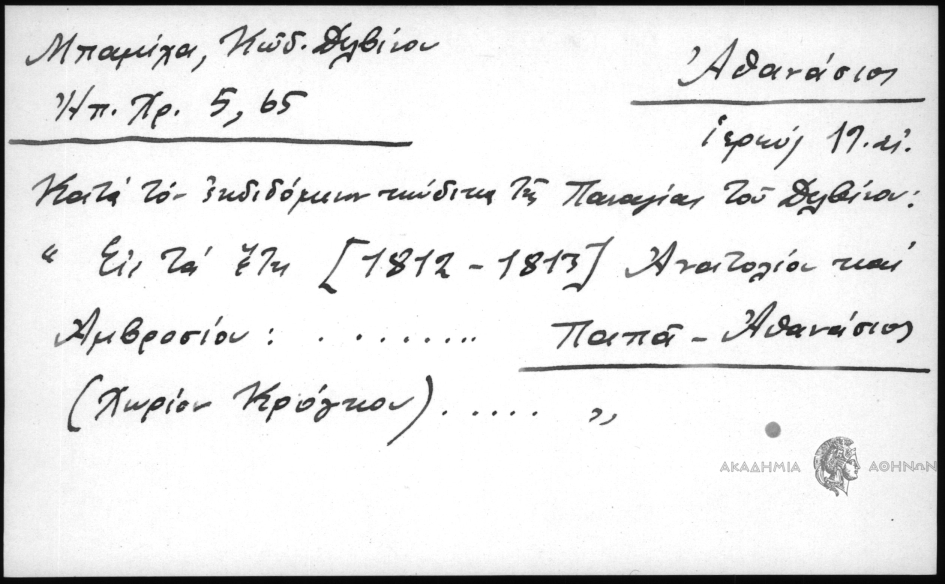 Μπαμίχα, Κώδ. Δελβίνου
Ἠπ. Χρ. 5, 65
Ἀθανάσιος
ἱερεύς 19. αἰ.
Κατά τόν ἐκδιδόμενον κώδικα τῆς Παναγίας τοῦ Δελβίνου:
“ Εἰς τά ἔτη [1812 - 1813] Ἀνατολίου καί
Ἀμβροσίου : . . . . . . . . Παπᾶ - Ἀθανάσιος
(Χωρίον Κρόγκου) . . . . . ”
ΑΚΑΔΗΜΙΑ ΑΘΗΝΩΝ